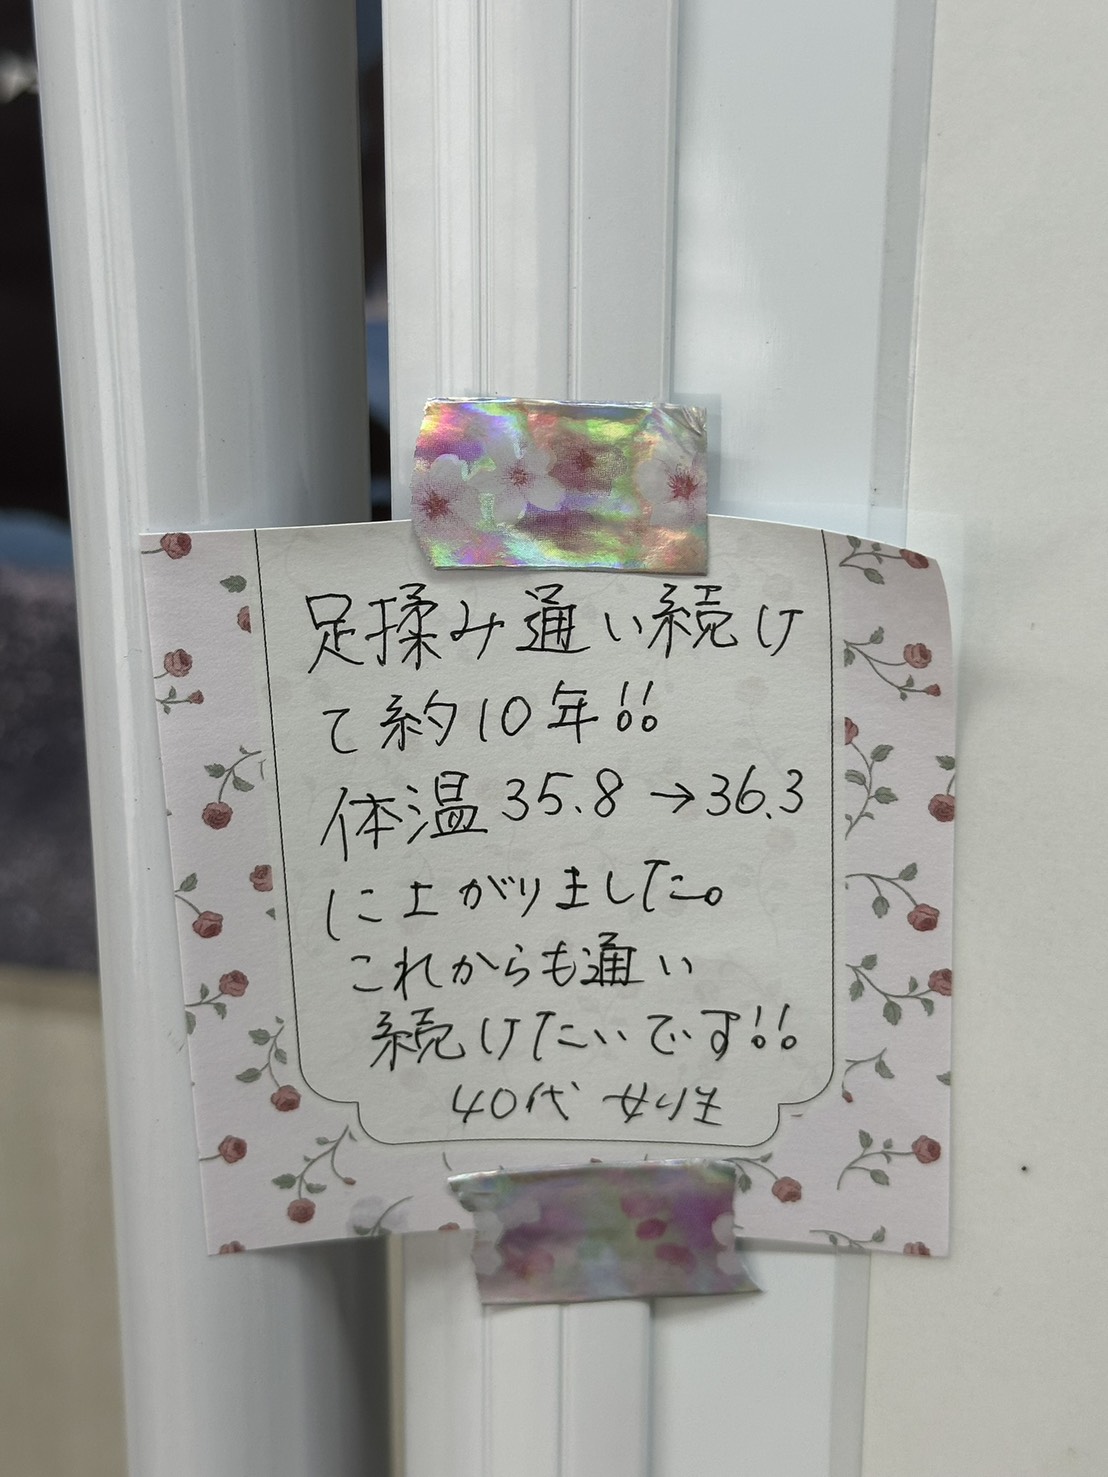 足揉み通い続け
て約10年!!
体温35.8→36.3
に上がりました。
これからも通い
続けたいです!!
40代 女性